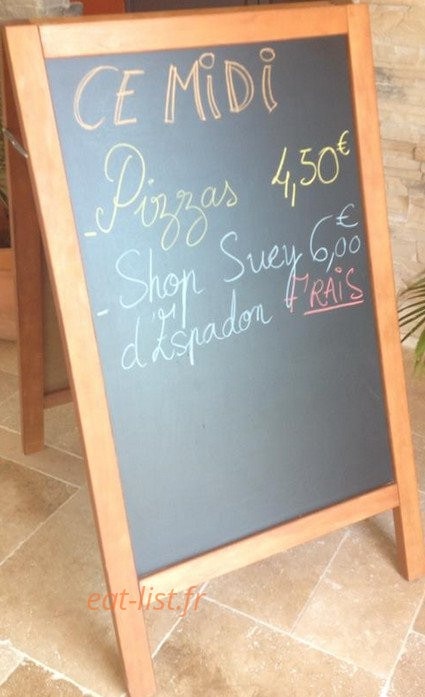 CE MIDI
- Pizzas 4,50€
- Shop Suey 6,00€
d'Espadon FRAIS
eat-list.fr